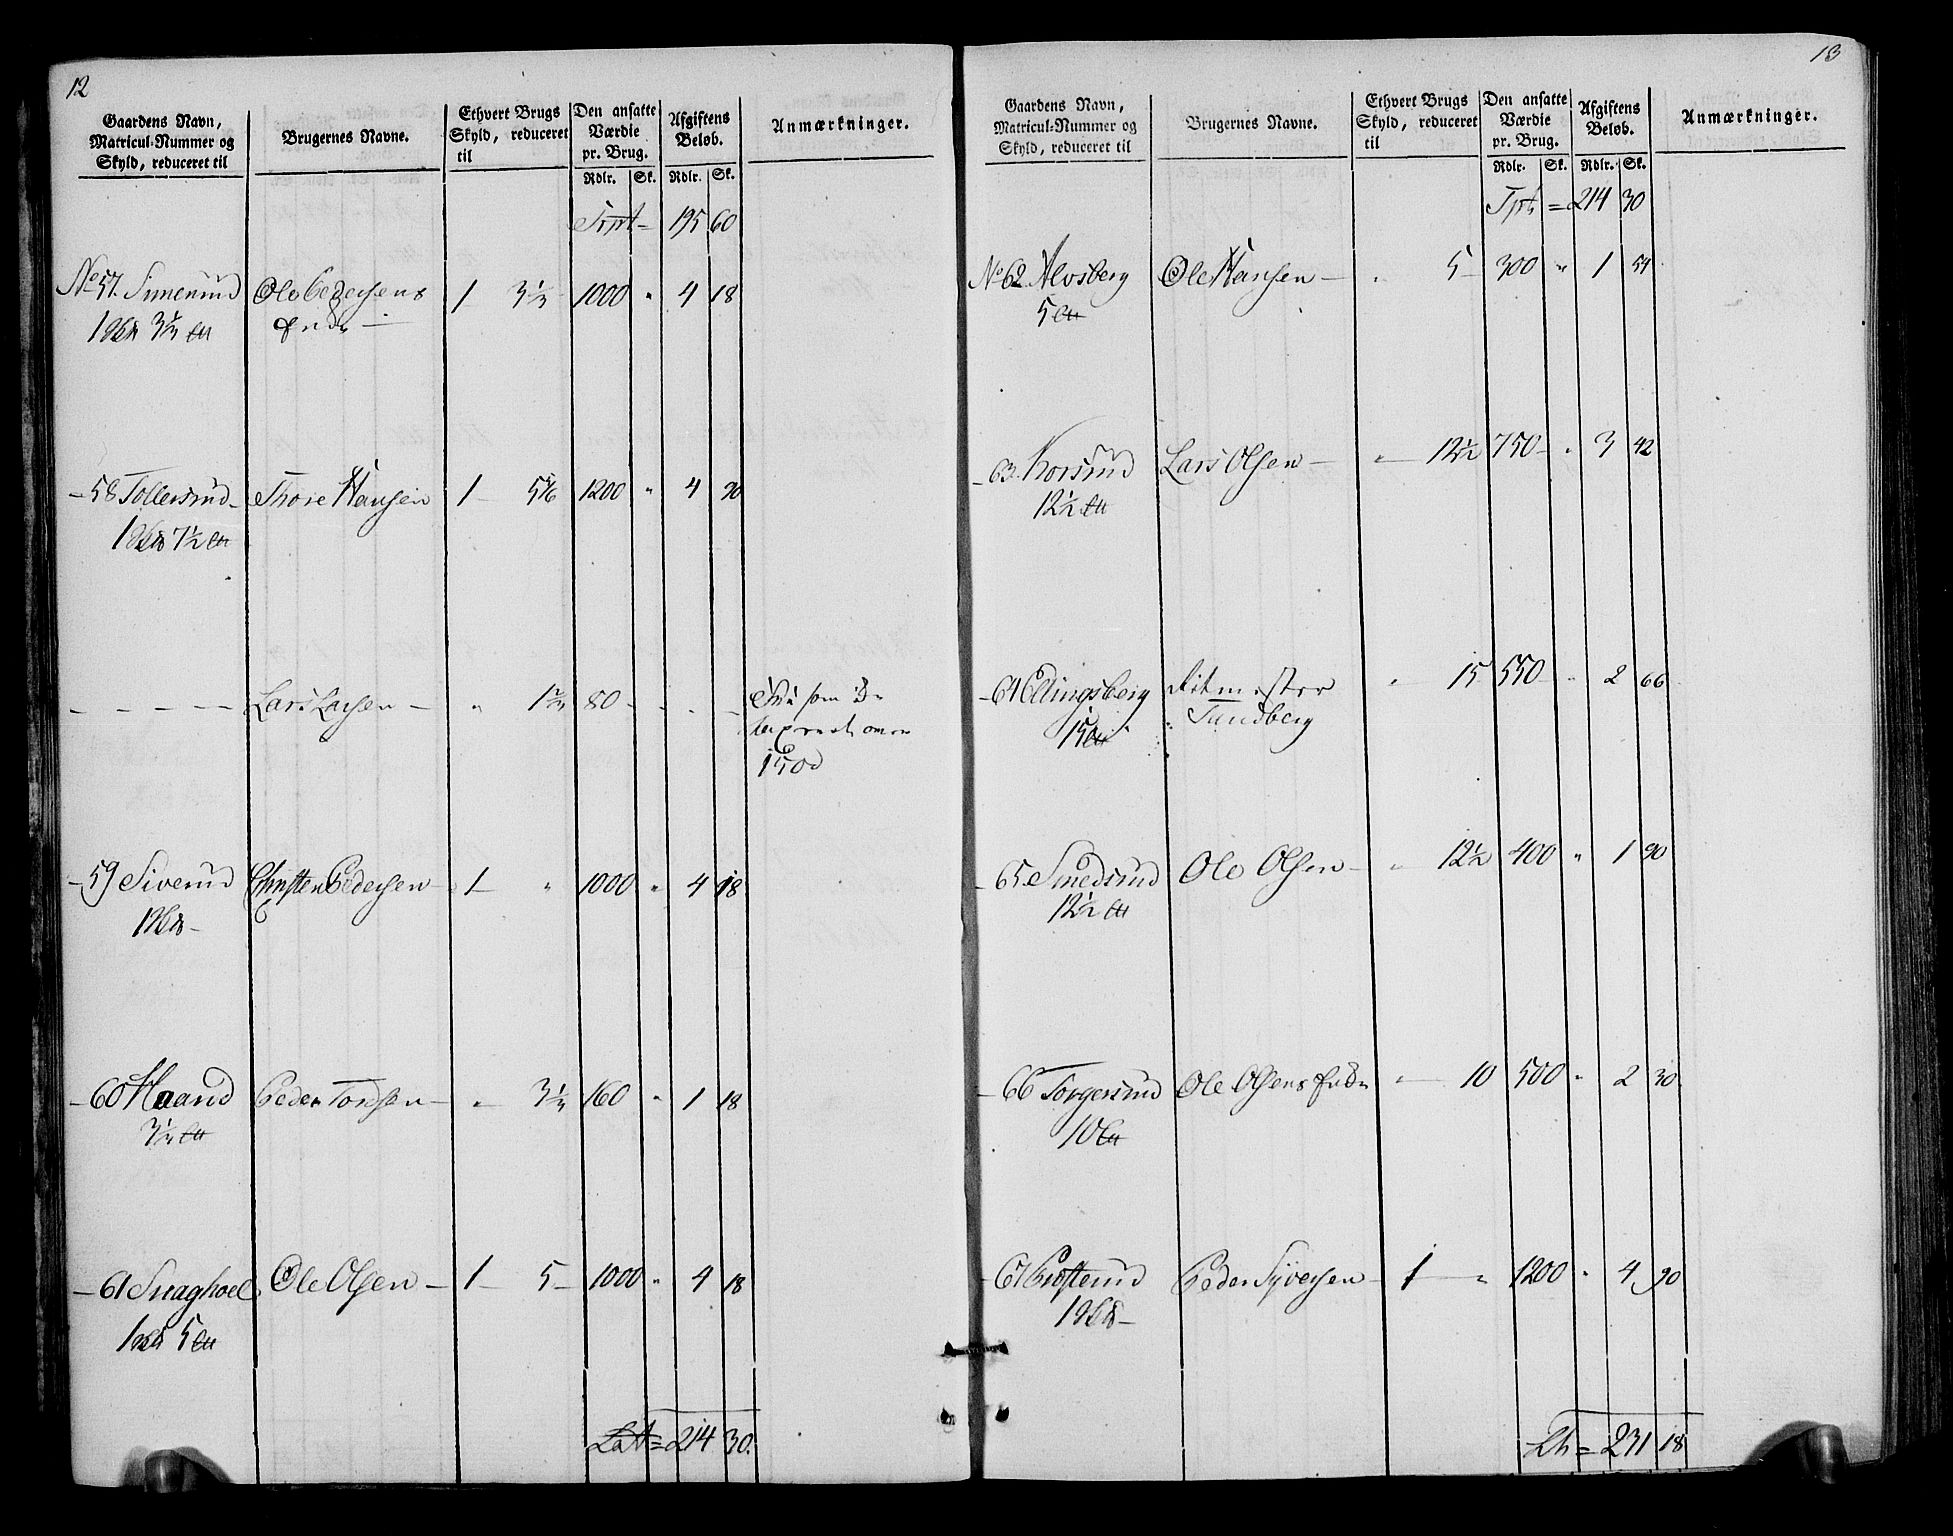 12
Gaardens Navn, Matricul-Nummer og Skyld, reduceret til
Brugernes Navne.
Ethvert Brugs Skyld, reduceret til
Den ansatte Værdie pr. Brug.
Afgiftens Beløb.
Anmærkninger.
Rdlr. Sk. Rdlr. Sk.
Trpt = 195 60
No 57. Simerud Ole Pedersens 1 3 1/3 1000 " 4 18
Enke
58 Tollersrud Thore Hansen 1 5 5/6 1200 " 4 90
1 7 1/2
Lars Larsen " 1 2/3 80
som
1500
59 Siverud Christen Pedersen 1 " 1000 " 4 18
1
60 Haand Peder Tordsen " 3 1/3 160 " 1 18
3 1/3
61 Snaghoel Ole Olsen 1 5 1000 " 4 18
1 5
Lat = 214 30.
13
Gaardens Navn, Matricul-Nummer og Skyld, reduceret til
Brugernes Navne.
Ethvert Brugs Skyld, reduceret til
Den ansatte Værdie pr. Brug.
Afgiftens Beløb.
Anmærkninger.
Rdlr. Sk. Rdlr. Sk.
Tpt = 214 30
No 62 Alosberg Ole Hansen " 5 300 " 1 54
5
63 Korsrud Lars Olsen " 12 1/2 750 " 3 42
12 1/2
64 Ellingsberg Ritmester " 15 550 " 2 66
15 Sundberg
65 Smedsrud Ole Olsen " 12 1/2 400 " 1 90
12 1/2
66 Torgersrud Ole Olsens Enke " 10 500 " 2 30
10
67 Prosterud Peder Syversen 1 " 1200 " 4 90
1
Lt = 231 18